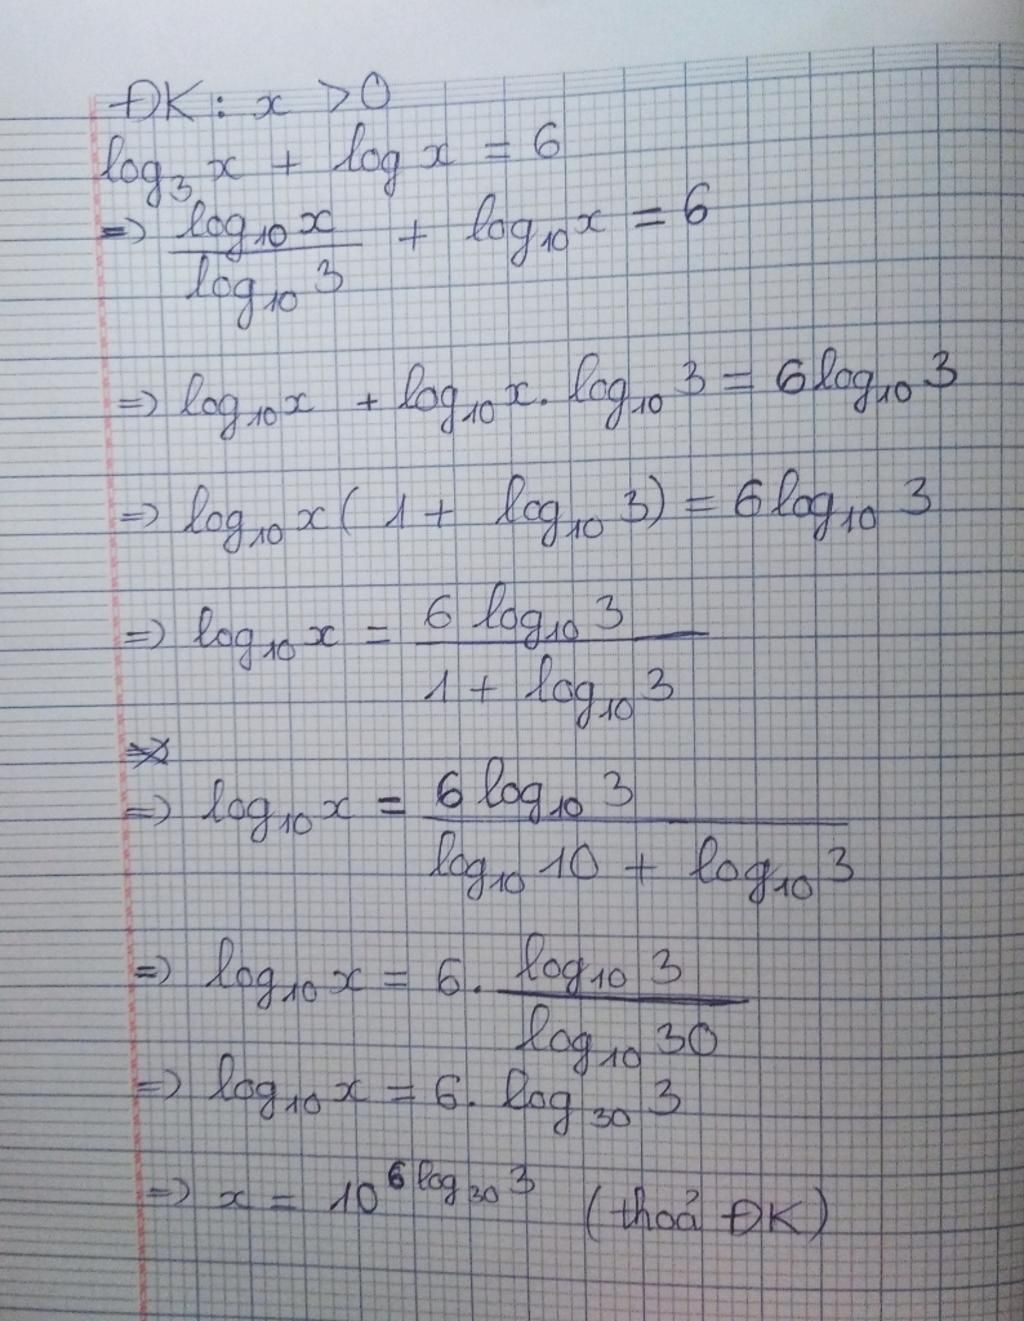 ĐK: x > 0
log₃ x + log x = 6
=> log₁₀ x / log₁₀ 3 + log₁₀ x = 6
=> log₁₀ x + log₁₀ x . log₁₀ 3 = 6 log₁₀ 3
=> log₁₀ x ( 1 + log₁₀ 3) = 6 log₁₀ 3
=> log₁₀ x = 6 log₁₀ 3 / 1 + log₁₀ 3
=> log₁₀ x = 6 log₁₀ 3 / log₁₀ 10 + log₁₀ 3
=> log₁₀ x = 6 . log₁₀ 3 / log₁₀ 30
=> log₁₀ x = 6 . log₃₀ 3
=> x = 10^(6 log₃₀ 3) (thoả ĐK)